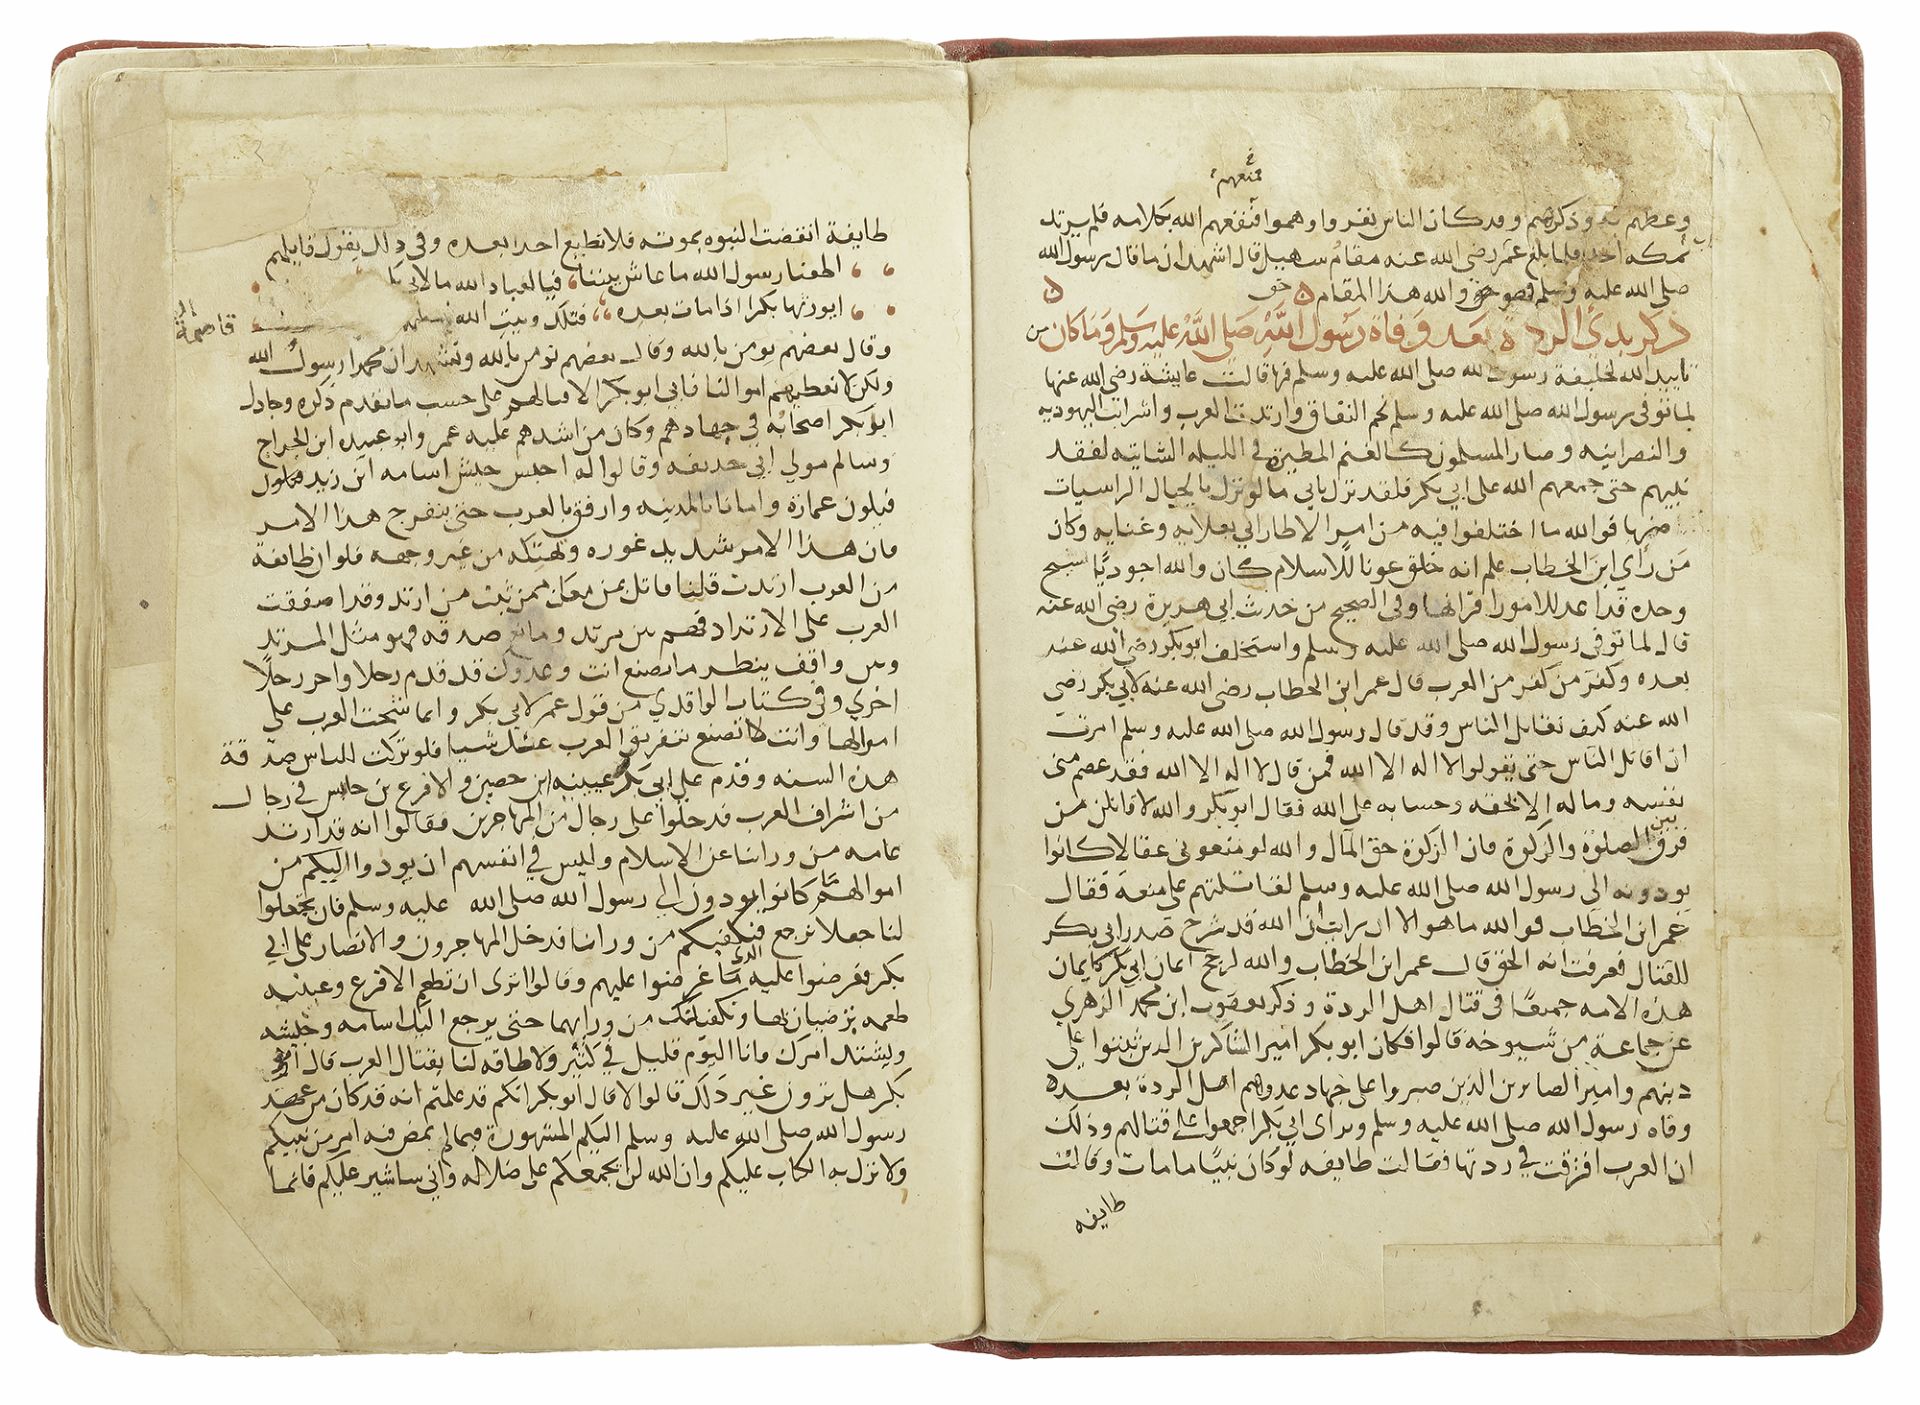 فمنعهم
وعظهم به وذكرهم وقد كان الناس نفروا وهموا فنفعهم الله بكلامه فلم يرتد
بمكه احد فلما بلغ عمر رضي الله عنه مقام سهيل قال اشهد ان ما قال رسول الله
صلى الله عليه وسلم فهو حق والله هذا المقام
ذكر بدئ الردة بعد وفاة رسول الله صلى الله عليه وسلم وما كان من
تاييد الله لخليفة رسول الله صلى الله عليه وسلم فيها قالت عايشة رضي الله عنها
لما توفى رسول الله صلى الله عليه وسلم نجم النفاق وارتدت العرب واشرابت اليهوديه
والنصرانيه وصار المسلمون كالغنم المطيرة في الليله الشاتيه لفقد
نبيهم حتى جمعهم الله على ابي بكر فلقد نزل بابي ما لو نزل بالجبال الراسيات
لهاضها فوالله ما اختلفوا فيه من امر الا طار ابي بعلايه وغنايه وكان
من رأى ابن الخطاب علم انه خلق عونا للاسلام كان والله احوذيا نسيج
وحده قد اعد للامور اقرانها وفي الصحيح من حديث ابي هريرة رضي الله عنه
قال لما توفى رسول الله صلى الله عليه وسلم واستخلف ابو بكر رضي الله عنه
بعده وكفر من كفر من العرب قال عمر ابن الخطاب رضي الله عنه لابي بكر رضى
الله عنه كيف نقاتل الناس وقد قال رسول الله صلى الله عليه وسلم امرت
ان اقاتل الناس حتى يقولوا لا اله الا الله فمن قال لا اله الا الله فقد عصم مني
نفسه وماله الا بحقه وحسابه على الله فقال ابو بكر والله لاقاتلن من
فرق بين الصلوة والزكوة فان الزكوة حق المال والله لو منعوني عقالا كانوا
يودونه الى رسول الله صلى الله عليه وسلم لقاتلتهم على منعه فقال
عمر ابن الخطاب فوالله ما هو الا ان رايت ان الله قد شرح صدر ابي بكر
للقتال فعرفت انه الحق قال عمر ابن الخطاب والله لرجح ايمان ابي بكر بايمان
هذه الامه جميعًا في قتال اهل الردة وذكر يعقوب ابن محمد الزهري
عن جماعة من شيوخه قالوا فكان ابو بكر امير الشاكرين الذين ثبتوا على
دينهم وامير الصابرين الذين صبروا على جهاد عدوهم اهل الردة بعده
وفاه رسول الله صلى الله عليه وسلم وبراي ابي بكر اجمعوا على قتالهم وذلك
ان العرب افترقت في ردتها فقالت طايفه لو كان نبيًا ما مات وقالت
طايفه
طايفة انقضت النبوه بموته فلا نطيع احدا بعده وفي ذلك يقول قايلهم
اطعنا رسول الله ما عاش بيننا فيا لعباد الله ما لابي
ايورثها بكرا اذا مات بعده فتلك وبيت الله
قاصمة
وقال بعضهم نومن بالله وقال بعضهم نومن بالله ونشهد ان محمدا رسول الله
ولكن لا نعطيهم اموالنا فابى ابو بكر الا قتالهم على حسب ما تقدم ذكره وجادل
ابو بكر اصحابه في جهادهم وكان من اشدهم عليه عمر وابو عبيده ابن الجراح
وسالم مولى ابي حذيفه وقالوا له احبس جيش اسامه ابن زيد فيكون
عمارة وامانا بالمدينه وارفق بالعرب حتى ينفرج هذا الامر
فان هذا الامر شديد غوره ونهتكه من غير وجهه فلو ان طايفة
من العرب ارتدت قلنا قاتل بمن معك ممن ثبت من ارتد وقد اصفقت
العرب على الارتداد فهم بين مرتد ومانع صدقه فهو مثل المرتد
وبين واقف ينظر ما تصنع انت وعدوك قد قدم رجلا واخر رجلًا
اخرى وفي كتاب الواقدي من قول عمر لابي بكر وانما شحت العرب على
اموالها وانت لا تصنع بتفريق العرب عنك شيا فلو تركت للناس صدقة
هذه السنه وقدم على ابي بكر عيينه ابن حصين والاقرع بن حابس في رجال
من اشراف العرب فدخلوا على رجال من المهاجرين فقالوا انه قد ارتد
عامه من وراءنا عن الاسلام وليس في انفسهم ان يودوا اليكم من
اموالهم ما كانوا يودون الى رسول الله صلى الله عليه وسلم فان تجعلوا
لنا جعلا نرجع فنكفيكم من وراءنا فدخل المهاجرون والانصار على ابي
بكر فعرضوا عليه الذي عرضوا عليهم وقالوا نرى ان تطعم الاقرع وعيينه
طعمه يرضيان بها ويكفيانك من وراهما حتى يرجع اليك اسامه وجيشه
ويشتد امرك فانا اليوم قليل في كثير ولا طاقه لنا بقتال العرب قال ابو
بكر هل ترون غير ذلك قالوا لا قال ابو بكر انكم قد علمتم انه قد كان من عهد
رسول الله صلى الله عليه وسلم اليكم المشهورة فيما لم يمض فيه امر من نبيكم
ولا نزل به الكتاب عليكم وان الله لن يجمعكم على ضلاله واني ساشير عليكم فانما